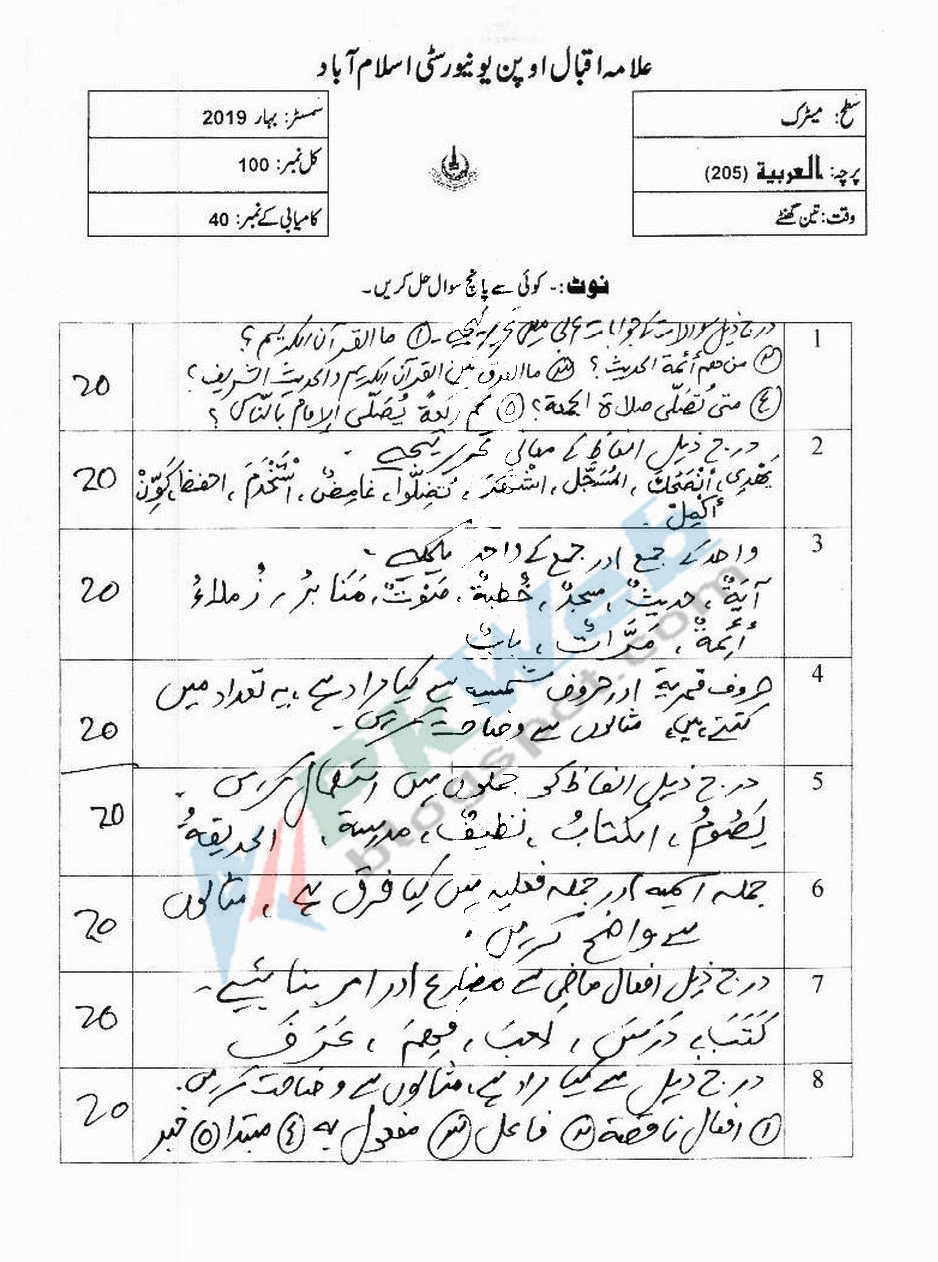 علامہ اقبال اوپن یونیورسٹی اسلام آباد
سطح: میٹرک
پرچہ: العربية (205)
وقت: تین گھنٹے
سمسٹر: بہار 2019
کل نمبر: 100
کامیابی کے نمبر: 40
نوٹ:۔ کوئی سے پانچ سوال حل کریں۔
1
درج ذیل سوالات کے جوابات عربی میں تحریر کیجیے۔ ① ما القرآن الكريم؟
② من هم أئمة الحديث؟ ③ ما الفرق بين القرآن الكريم والحديث الشريف؟
④ متى تُصَلّى صلاة الجمعة؟ ⑤ كم ركعةً يُصَلّى الإمام بالنّاس؟
20
2
درج ذیل الفاظ کے معانی تحریر کیجیے۔
يَهْدِى، أَنْصَحُكَ، المُسَجَّل، تَضِلّوا، غامِضٌ، اسْتَخْدَمَ، احفظ، كَوِّنْ
أكمِل۔
20
3
واحد کے جمع اور جمع کے واحد لکھیے۔
آيَةٌ، حديثٌ، مسجدٌ، خُطبةٌ، صَوْتٌ، مَنَابرُ، زُملاءُ
أئِمةٌ، مَرَّاتٌ، بابٌ
20
4
حروف قمریة اور حروف شمسیہ سے کیا مراد ہے، یہ تعداد میں
کتنے ہیں، مثالوں سے وضاحت کریں۔
20
5
درج ذیل الفاظ کو جملوں میں استعمال کریں۔
يَصُومُ، الكتابُ، نظيفٌ، مدرسة، الحديقةُ
20
6
جملہ اسمیہ اور جملہ فعلیہ میں کیا فرق ہے، مثالوں
سے واضح کریں۔
20
7
درج ذیل افعال ماضی سے مضارع اور امر بنائیے۔
كَتَبَ، دَرَسَ، لعبَ، فَهِمَ، عَرَفَ
20
8
درج ذیل سے کیا مراد ہے، مثالوں سے وضاحت کریں۔
① افعال ناقصة ② فاعل ③ مفعول به ④ مبتدا ⑤ خبر
20
PKWeb
blogspot.com